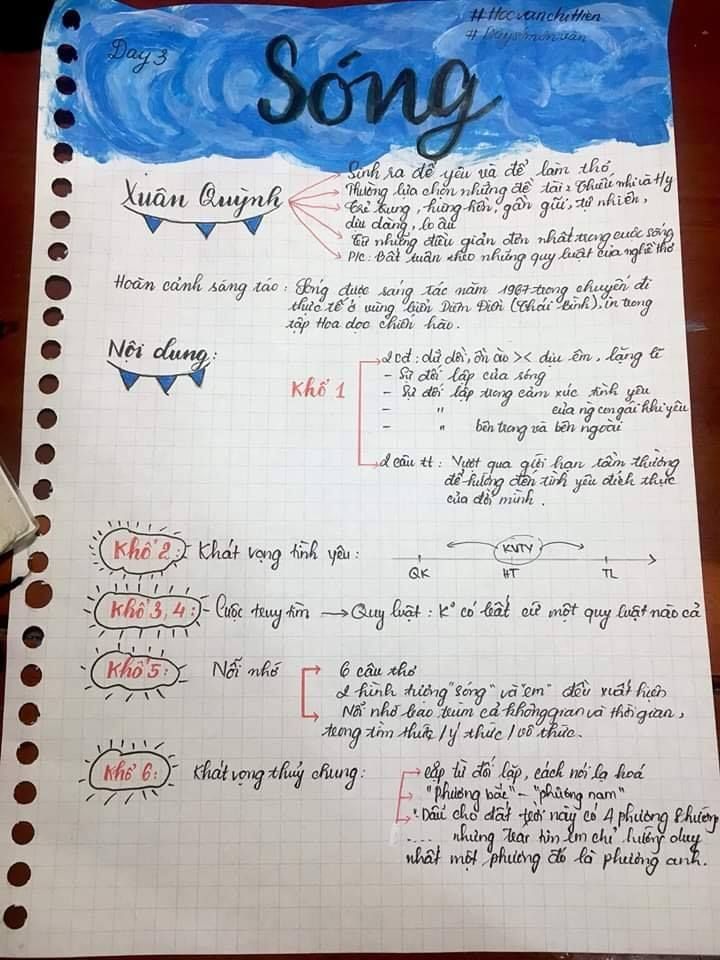 #Hocvanchihien
Day 3
#Days mônvăn
Sóng
Xuân Quỳnh
Sinh ra để yêu và để làm thơ
Thường lựa chọn những đề tài: Thiếu nhi và Hp
Trẻ trung, hồn nhiên, gần gũi, tự nhiên,
dịu dàng, lo âu
Từ những điều giản đơn nhất trong cuộc sống
P/c: Bất tuân theo những quy luật của nghề thơ
Hoàn cảnh sáng tác: Sóng được sáng tác năm 1967 trong chuyến đi
thực tế ở vùng biển Diêm Điền (Thái Bình), in trong
tập Hoa dọc chiến hào.
Nội dung:
Khổ 1
2 cđ: dữ dội, ồn ào >< dịu êm, lặng lẽ
- Sự đối lập của sóng
- Sự đối lập trong cảm xúc tình yêu
- " của ng con gái khi yêu
- " bên trong và bên ngoài
2 câu tt: Vượt qua giới hạn tầm thường
để hướng đến tình yêu đích thực
của đời mình.
Khổ 2: Khát vọng tình yêu:
KVTY
QK HT TL
Khổ 3, 4: Cuộc truy tìm → Quy luật: K° có bất cứ một quy luật nào cả
Khổ 5: Nỗi nhớ
6 câu thơ
2 hình tượng "sóng" và "em" đều xuất hiện
Nỗi nhớ bao trùm cả không gian và thời gian,
trong tiềm thức / ý thức / vô thức.
Khổ 6: Khát vọng thuỷ chung:
cặp từ đối lập, cách nói lạ hoá
"phương bắc" - "phương nam"
"Dẫu cho đất trời này có 4 phương 8 hướng
.... nhưng trái tim em chỉ hướng duy
nhất một phương đó là phương anh.